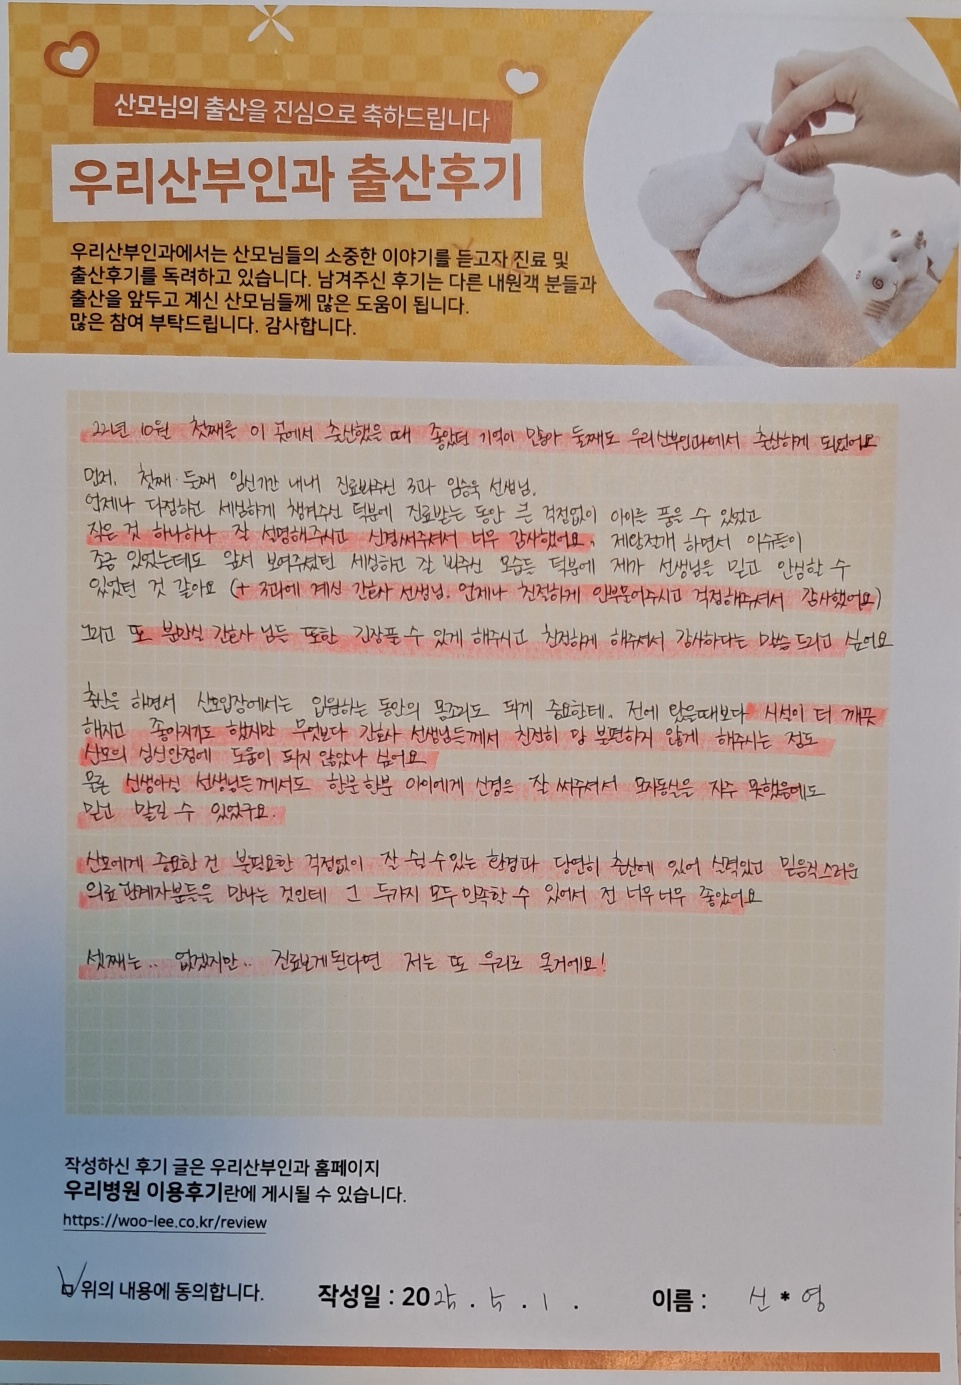 산모님의 출산을 진심으로 축하드립니다
우리산부인과 출산후기
우리산부인과에서는 산모님들의 소중한 이야기를 듣고자 진료 및
출산후기를 독려하고 있습니다. 남겨주신 후기는 다른 내원객 분들과
출산을 앞두고 계신 산모님들께 많은 도움이 됩니다.
많은 참여 부탁드립니다. 감사합니다.
22년 10월 첫째를 이 곳에서 출산했을 때 좋았던 기억이 많아 둘째도 우리산부인과에서 출산하게 되었어요
먼저, 첫째·둘째 임신기간 내내 진료봐주신 3과 임승욱 선생님.
언제나 다정하고 세심하게 챙겨주신 덕분에 진료받는 동안 큰 걱정없이 아이를 품을 수 있었고
작은 것 하나하나 잘 설명해주시고 신경써주셔서 너무 감사했어요. 제왕절개 하면서 이슈들이
조금 있었는데도 앞서 보여주셨던 세심하고 잘 봐주신 모습들 덕분에 제가 선생님을 믿고 안심할 수
있었던 것 같아요 (+ 3과에 계신 간호사 선생님. 언제나 친절하게 안부물어주시고 걱정해주셔서 감사했어요)
그리고 또 분만실 간호사 님들 또한 긴장풀 수 있게 해주시고 친절하게 해주셔서 감사하다는 말씀 드리고 싶어요
출산을 하면서 산모입장에서는 입원하는 동안의 몸조리도 되게 중요한테, 전에 왔을때보다 시설이 더 깨끗
해지고 좋아지기도 했지만 무엇보다 간호사 선생님들께서 친절히 맘 불편하지 않게 해주시는 점도
산모의 심신안정에 도움이 되지 않았나 싶어요
물론 신생아실 선생님들께서도 한분한분 아이에게 신경을 잘 써주셔서 모자동실을 자주 못했음에도
믿고 맡길 수 있었구요.
산모에게 중요한 건 불필요한 걱정없이 잘 쉴 수 있는 환경과 당연히 출산에 있어 실력있고 믿음직스러운
의료관계자분들을 만나는 것인데 그 두가지 모두 만족할 수 있어서 전 너무너무 좋았어요
셋째는.. 없겠지만.. 진료보게된다면 저는 또 우리로 올거에요!
작성하신 후기 글은 우리산부인과 홈페이지
우리병원 이용후기란에 게시될 수 있습니다.
https://woo-lee.co.kr/review
위의 내용에 동의합니다. 작성일 : 2025 . 5 . 1 . 이름 : 신*영